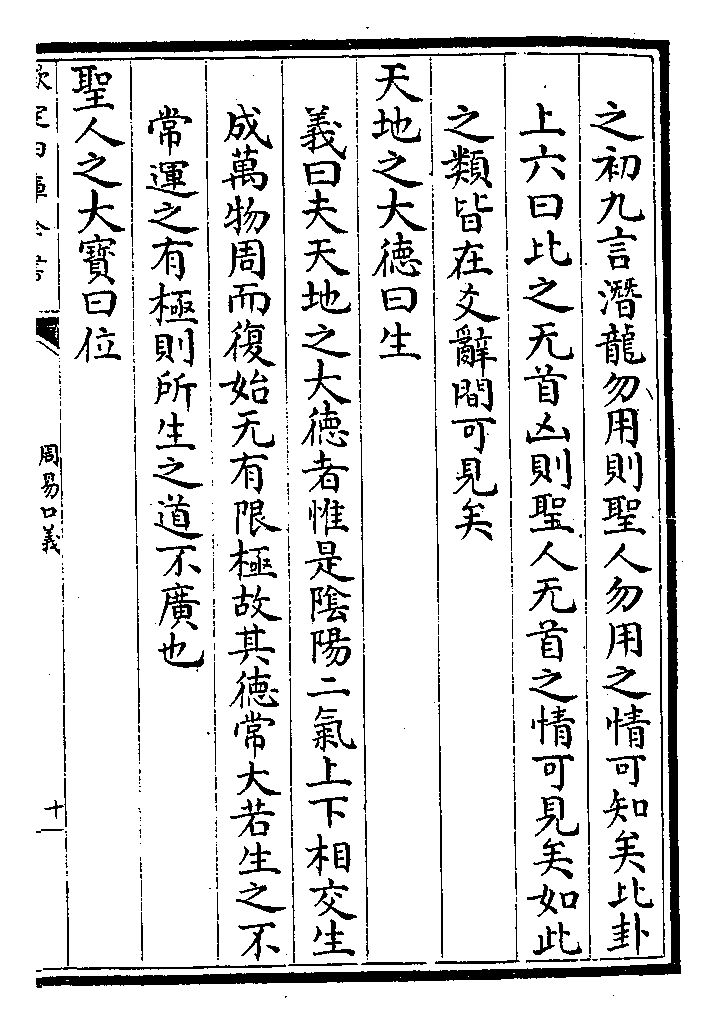 之初九言潛龍勿用則聖人勿用之情可知矣比卦
上六曰比之无首凶則聖人无首之情可見矣如此
之類皆在爻辭間可見矣
天地之大德曰生
義曰夫天地之大德者惟是陰陽二氣上下相交生
成萬物周而復始无有限極故其德常大若生之不
常運之有極則所生之道不廣也
聖人之大寶曰位
欽定四庫全書
周易口義
十